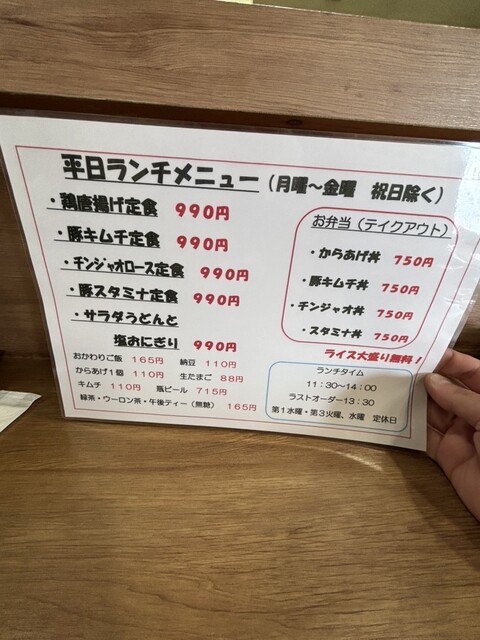 平日ランチメニュー（月曜～金曜 祝日除く）
・鶏唐揚げ定食 990円
・豚キムチ定食 990円
・チンジャオロース定食 990円
・豚スタミナ定食 990円
・サラダうどんと
塩おにぎり 990円
おかわりご飯 165円 納豆 110円
からあげ1個 110円 生たまご 88円
キムチ 110円 瓶ビール 715円
緑茶・ウーロン茶・午後ティー（無糖） 165円
お弁当（テイクアウト）
・からあげ丼 750円
・豚キムチ丼 750円
・チンジャオ丼 750円
・スタミナ丼 750円
ライス大盛り無料！
ランチタイム
11：30～14：00
ラストオーダー13：30
第1水曜・第3火曜、水曜 定休日